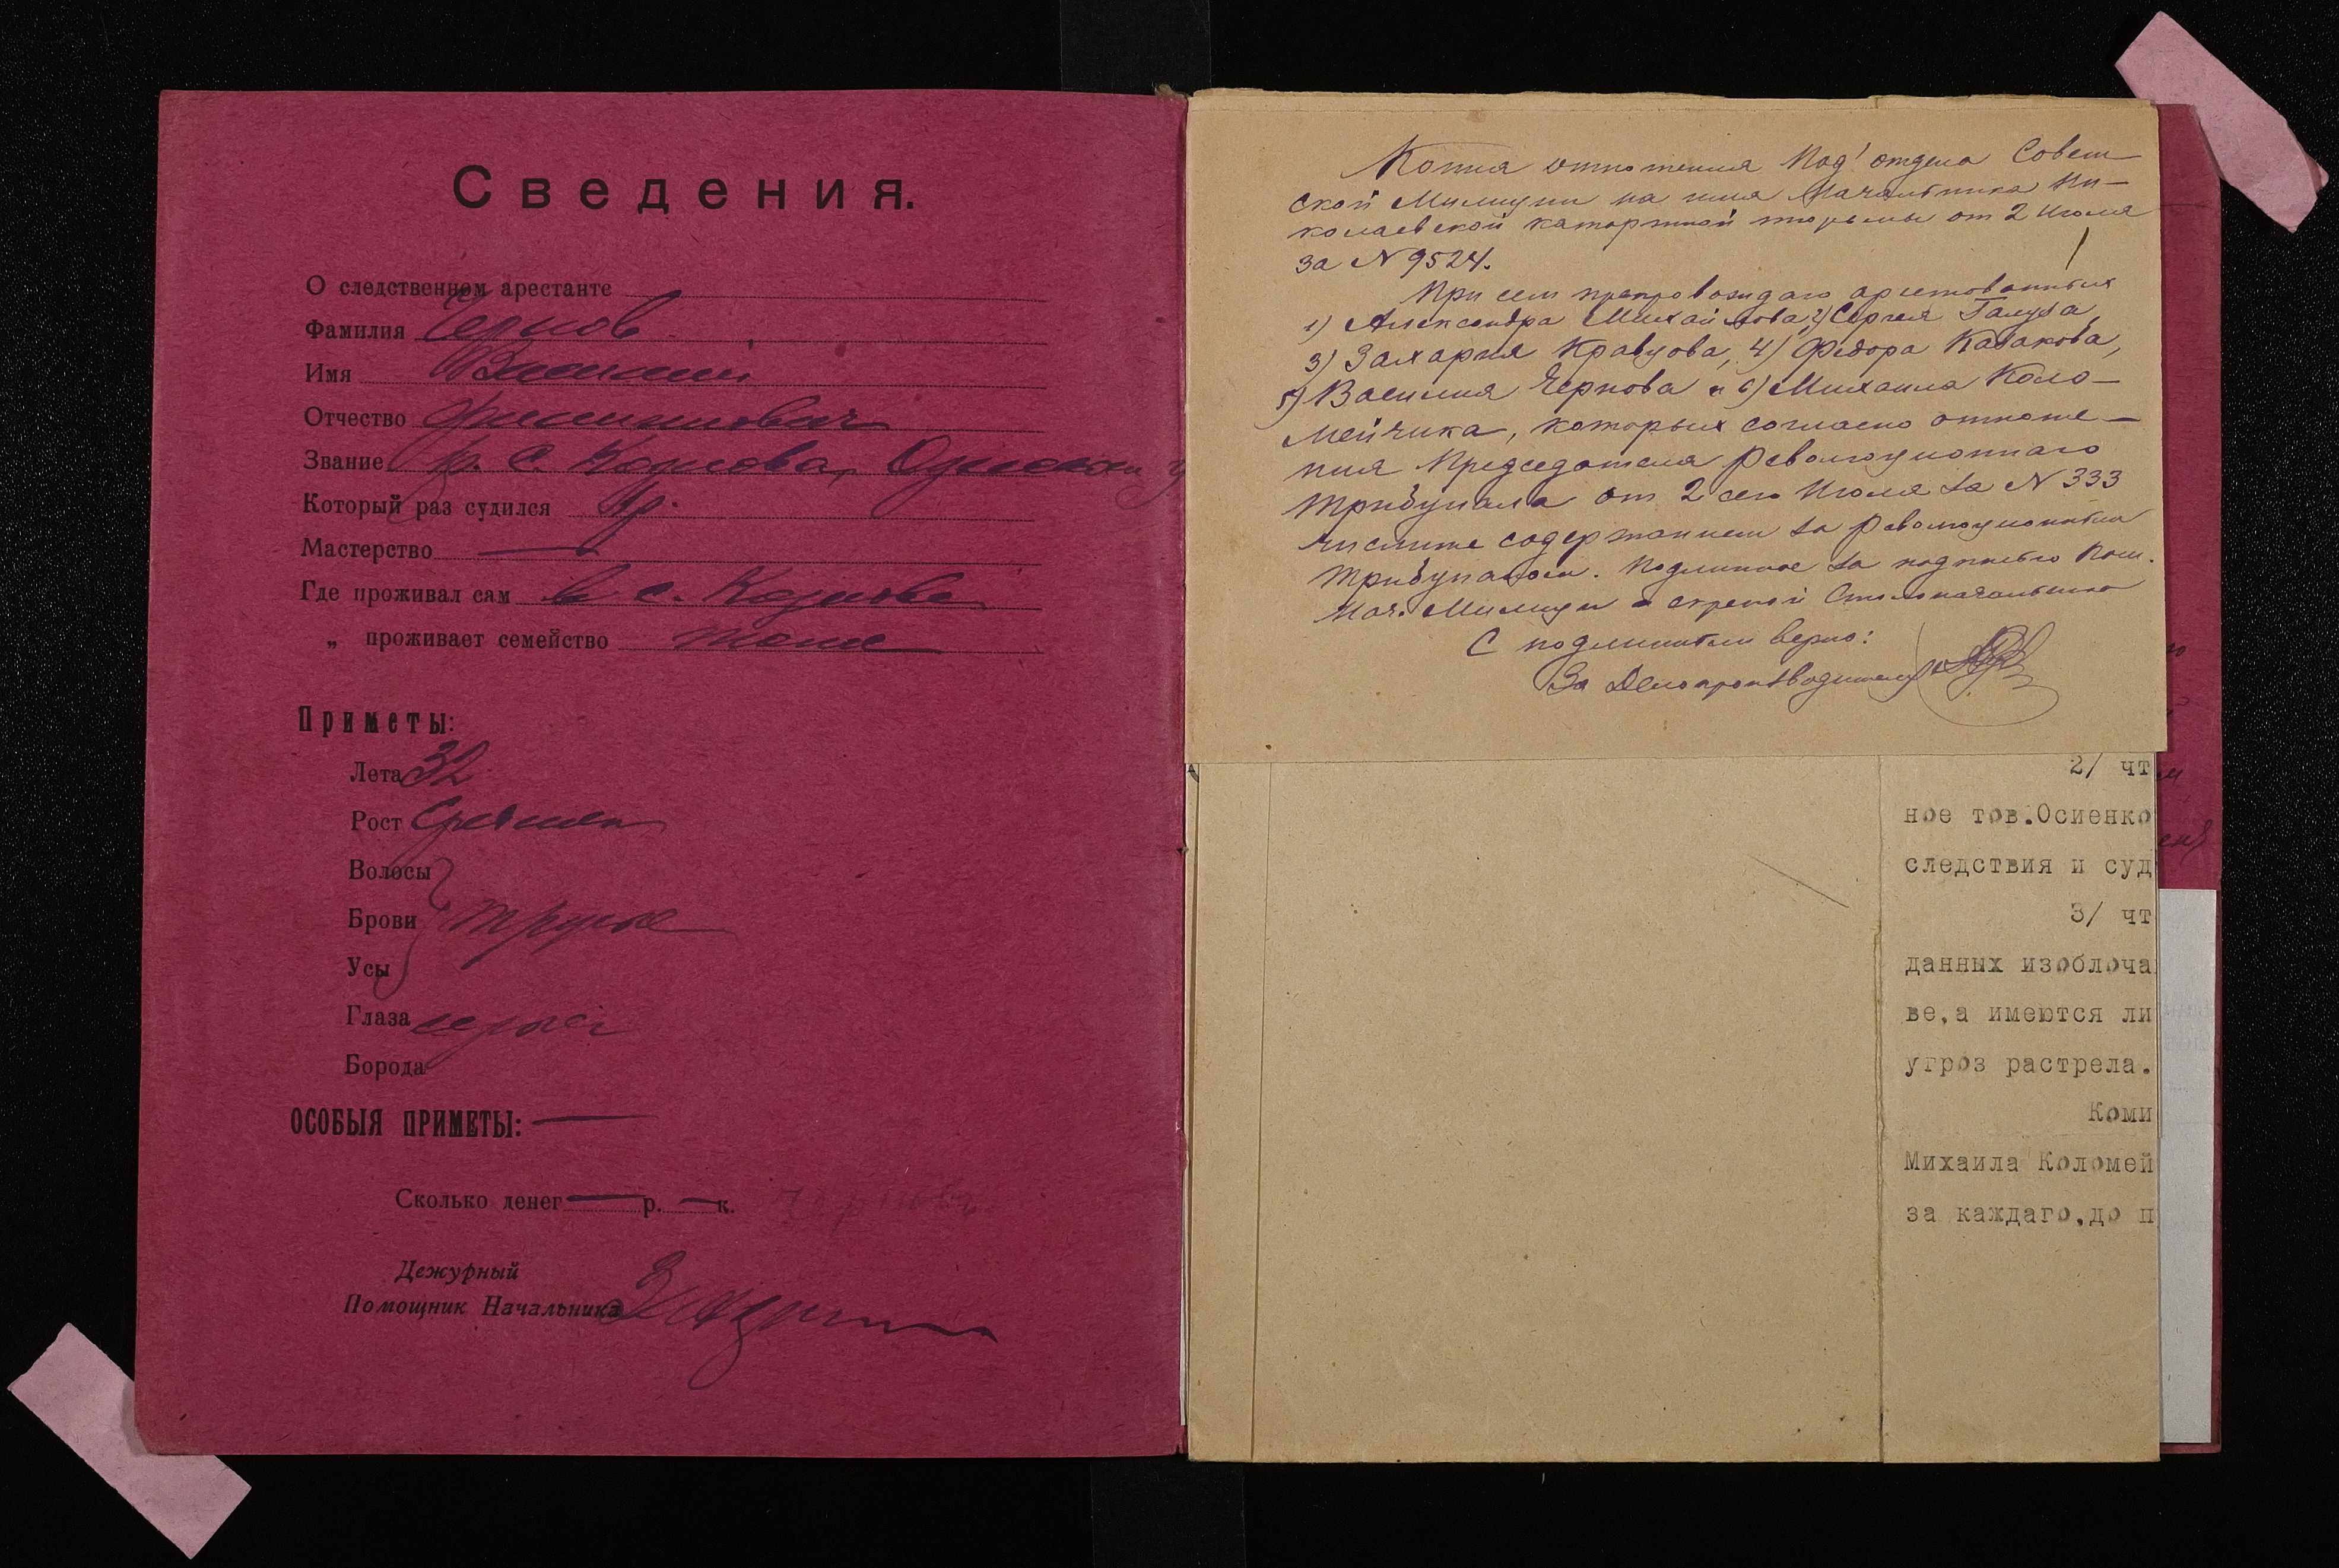 Сведения.
О следственном арестанте
Фамилия Чернов
Имя Василий
Отчество Филиппович
Звание кр. с. Козлова,
Который раз судился
Мастерство —
Где проживал сам в с. Козлове
„ проживает семейство тоже
Приметы:
Лета 32
Рост Средний
Волосы
Брови
Усы
Глаза серые
Борода
ОСОБЫЯ ПРИМЕТЫ: —
Сколько денег — р. — к.
Черновъ
Дежурный
Помощник Начальника
Копия отношения Под'отдела Совет-
ской Милиции на имя Начальника Ни-
колаевской каторжной тюрьмы от 2 Июля
за N 9524.
При сем препровождаю арестованных
1) Александра Михайлова, 2) Сергея Галуза,
3) Захария Кравцова, 4) Федора Казакова,
5) Василия Чернова и 6) Михаила Коло-
мейчика, которых согласно отноше-
ния Председателя Революционнаго
Трибунала от 2 сего Июля за N 333
числите содержанием за Революционным
Трибуналом. Подлинное за подписью Пом.
Нач. Милиции и скрепой Столоначальника
С подлинным верно:
За Делопроизводителя
2/ чт
ное тов.Осиенко
следствия и суд
3/ чт
данных изоблоча
ве,а имеются ли
угроз растрела.
Коми
Михаила Коломей
за каждаго,до п